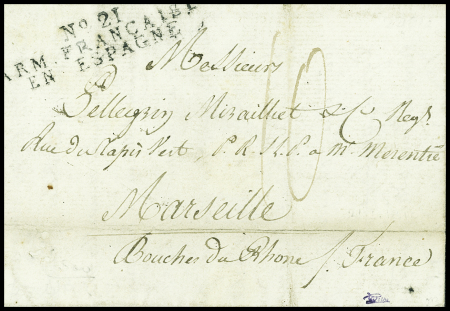 No 21
ARM. FRANÇAISE
EN ESPAGNE
Messieurs
10
Pellegrin Mirailliet & C. Negts
Rue du Tapis Vert, P. R. S. L. P. a Mr. Merentié
Marseille
Bouches du Rhone /. France